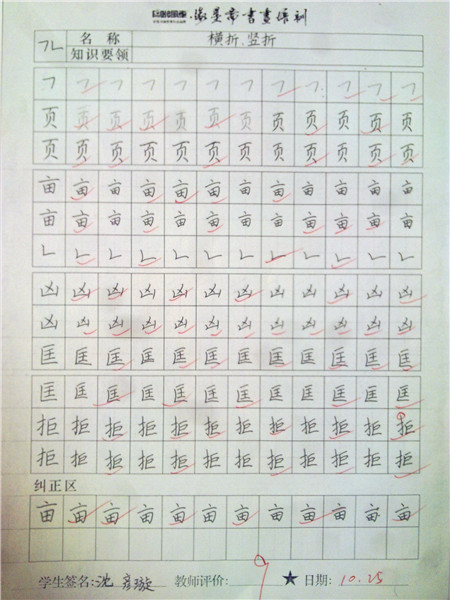 书畫培训
㇕㇗ 名称 横折.竖折
知识要领
㇕ ㇕ ㇕ ㇕ ㇕ ㇕ ㇕ ㇕ ㇕ ㇕ ㇕ ㇕
页 页 页 页 页 页 页 页 页 页 页 页
页 页 页 页 页 页 页 页 页 页 页 页
亩 亩 亩 亩 亩 亩 亩 亩 亩 亩 亩 亩
亩 亩 亩 亩 亩 亩 亩 亩 亩 亩 亩 亩
㇗ ㇗ ㇗ ㇗ ㇗ ㇗ ㇗ ㇗ ㇗ ㇗ ㇗ ㇗
凶 凶 凶 凶 凶 凶 凶 凶 凶 凶 凶 凶
凶 凶 凶 凶 凶 凶 凶 凶 凶 凶 凶 凶
匡 匡 匡 匡 匡 匡 匡 匡 匡 匡 匡 匡
匡 匡 匡 匡 匡 匡 匡 匡 匡 匡 匡 匡
拒 拒 拒 拒 拒 拒 拒 拒 拒 拒 拒 拒
拒 拒 拒 拒 拒 拒 拒 拒 拒 拒 拒 拒
纠正区
亩 亩 亩 亩 亩 亩 亩 亩 亩 亩 亩 亩
学生签名:沈彦璇 教师评价: 9 ★日期: 10.25